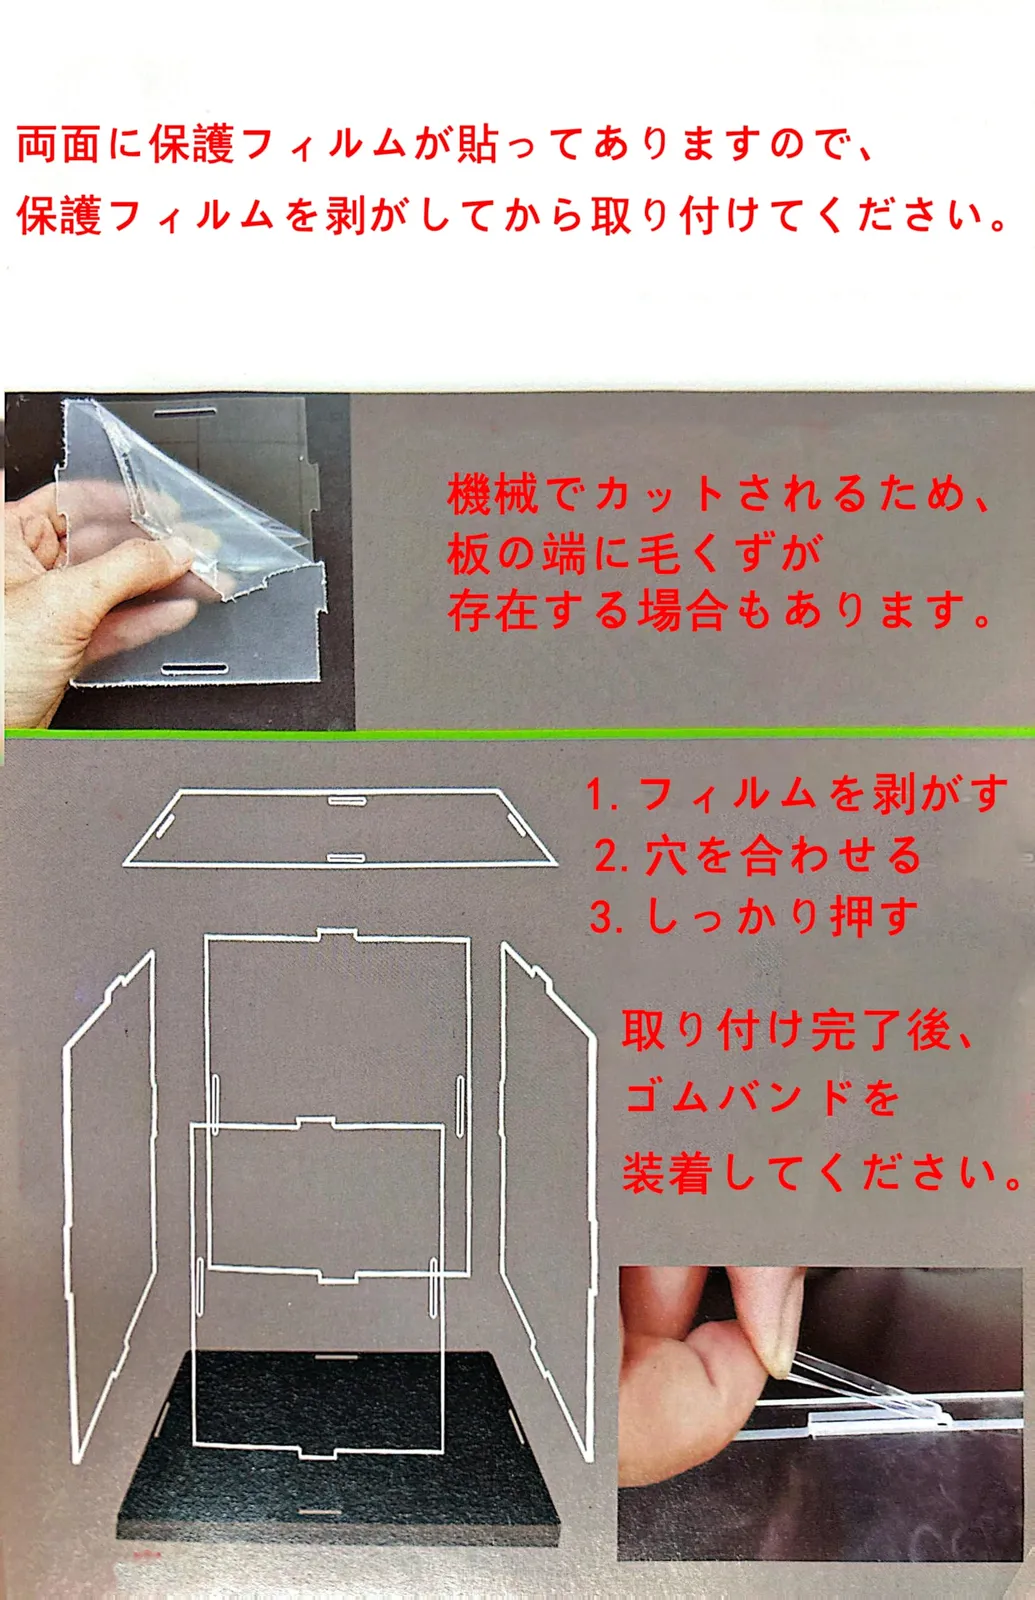 両面に保護フィルムが貼ってありますので、
保護フィルムを剥がしてから取り付けてください。
機械でカットされるため、
板の端に毛くずが
存在する場合もあります。
1. フィルムを剥がす
2. 穴を合わせる
3. しっかり押す
取り付け完了後、
ゴムバンドを
装着してください。